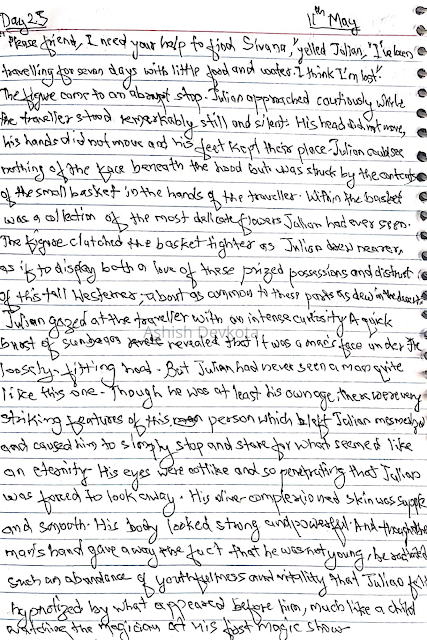 Day 25
11th May
"Please friend, I need your help to find Sivana," yelled Julian, "I've been
travelling for seven days with little food and water. I think I'm lost".
The figure came to an abrupt stop. Julian approached cautiously while
the traveller stood remarkably still and silent. His head did not move,
his hands did not move and his feet kept their place. Julian could see
nothing of the face beneath the hood but was struck by the contents
of the small basket in the hands of the traveller. Within the basket
was a collection of the most delicate flowers Julian had ever seen.
The figure clutched the basket tighter as Julian drew nearer,
as if to display both a love of these prized possessions and distrust
of this tall Westerner, about as common to these parts as dew in the desert.
Julian gazed at the traveller with an intense curiosity A quick
burst of sunbeams revealed that it was a man's face under the
Ashish Devkota
loosely-fitting hood. But Julian had never seen a man quite
like this one. Though he was at least his own age, there were very
striking features of this person which left Julian mesmerized
and caused him to simply stop and stare for what seemed like
an eternity. His eyes were catlike and so penetrating that Julian
was forced to look away. His olive-complexioned skin was supple
and smooth. His body looked strong and powerful. And though the
man's hand gave away the fact that he was not young, he radiated
such an abundance of youthfulness and vitality that Julian felt
hypnotized by what appeared before him, much like a child
watching the magician at his first magic show.